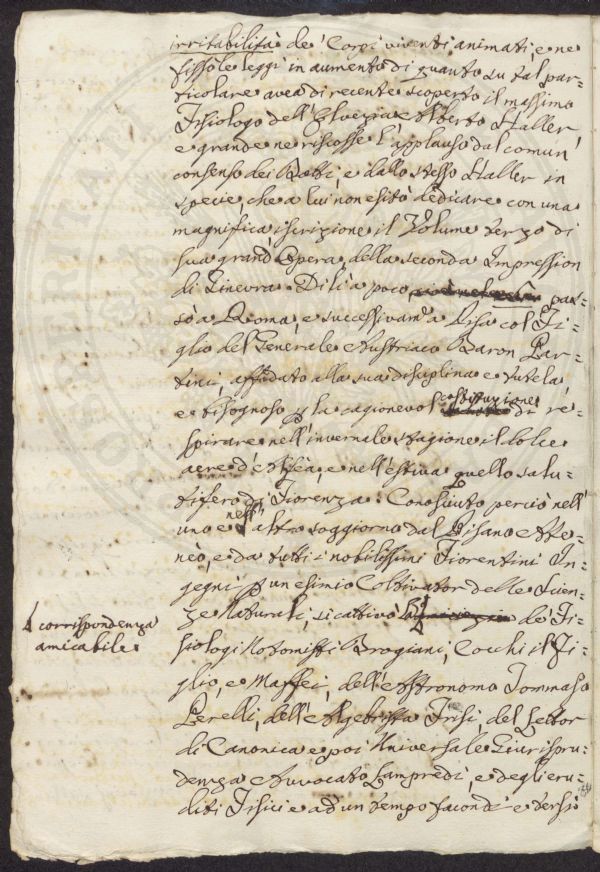 irritabilità de' Corpi viventi animati, e ne
fissò le leggi in aumento di quanto su tal par=
ticolare avea di recente scoperto il massimo
Fisiologo dell'Elvezia Alberto Haller,
e grande ne riscosse l'applauso dal comun
consenso dei Dotti, e dallo stesso Haller in
specie che a lui non esitò dedicare con una
magnifica iscrizione il Volume terzo di
sua grand'Opera della seconda Impression
di Ginevra. Di lì a poco pas=
sò a Roma, e successivam.e a Pisa col Fi=
glio del Generale Austriaco Baron Mar=
tini, affidato alla sua disciplina e tutela
e bisognoso p la cagionevol costituzione di re=
spirare nell'invernale stagione il dolce
aere d'Alfea, e nell'estiva quello salu=
tifero di Fiorenza. Conosciuto perciò nell'
uno e nell'altro soggiorno dal Pisano Ate=
neo, e da tutti i nobilissimi Fiorentini In=
gegni p un esimio Coltivator delle Scien=
ze Naturali, si cattivò la de' Fi=
corrispondenza
amicabile
siologi Notomisti Brogiani, Cocchi il Fi=
glio, e Maffei, dell'Astronomo Tommaso
Perelli, dell'Algebrista Frisi, del Lettor
di Canonica e poi Universale Giurispru=
denza Avvocato Lampredi, e degli eru=
diti Fisici e ad un tempo facondi e tersi